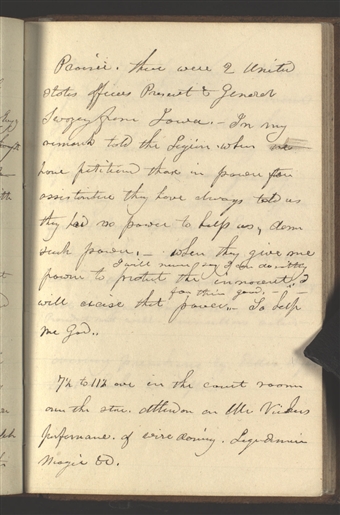 Prairie. there were 2 United
states officers Present & General
Swazey from Iowa. - In my
remark told the Legion when we
have petitiond those in power for
assistantce they have always told us
they had no power to help us, damn
such power. - when they give me
I will never say I can do nothing
power to protect the innocent. I
for their good. -
will excise that power. So help
me God..
7½ to 11½ ove in the court room
over the stor. attend on Mr Vickers
performance. of wire dancing. Legerdimain
Magic &c.